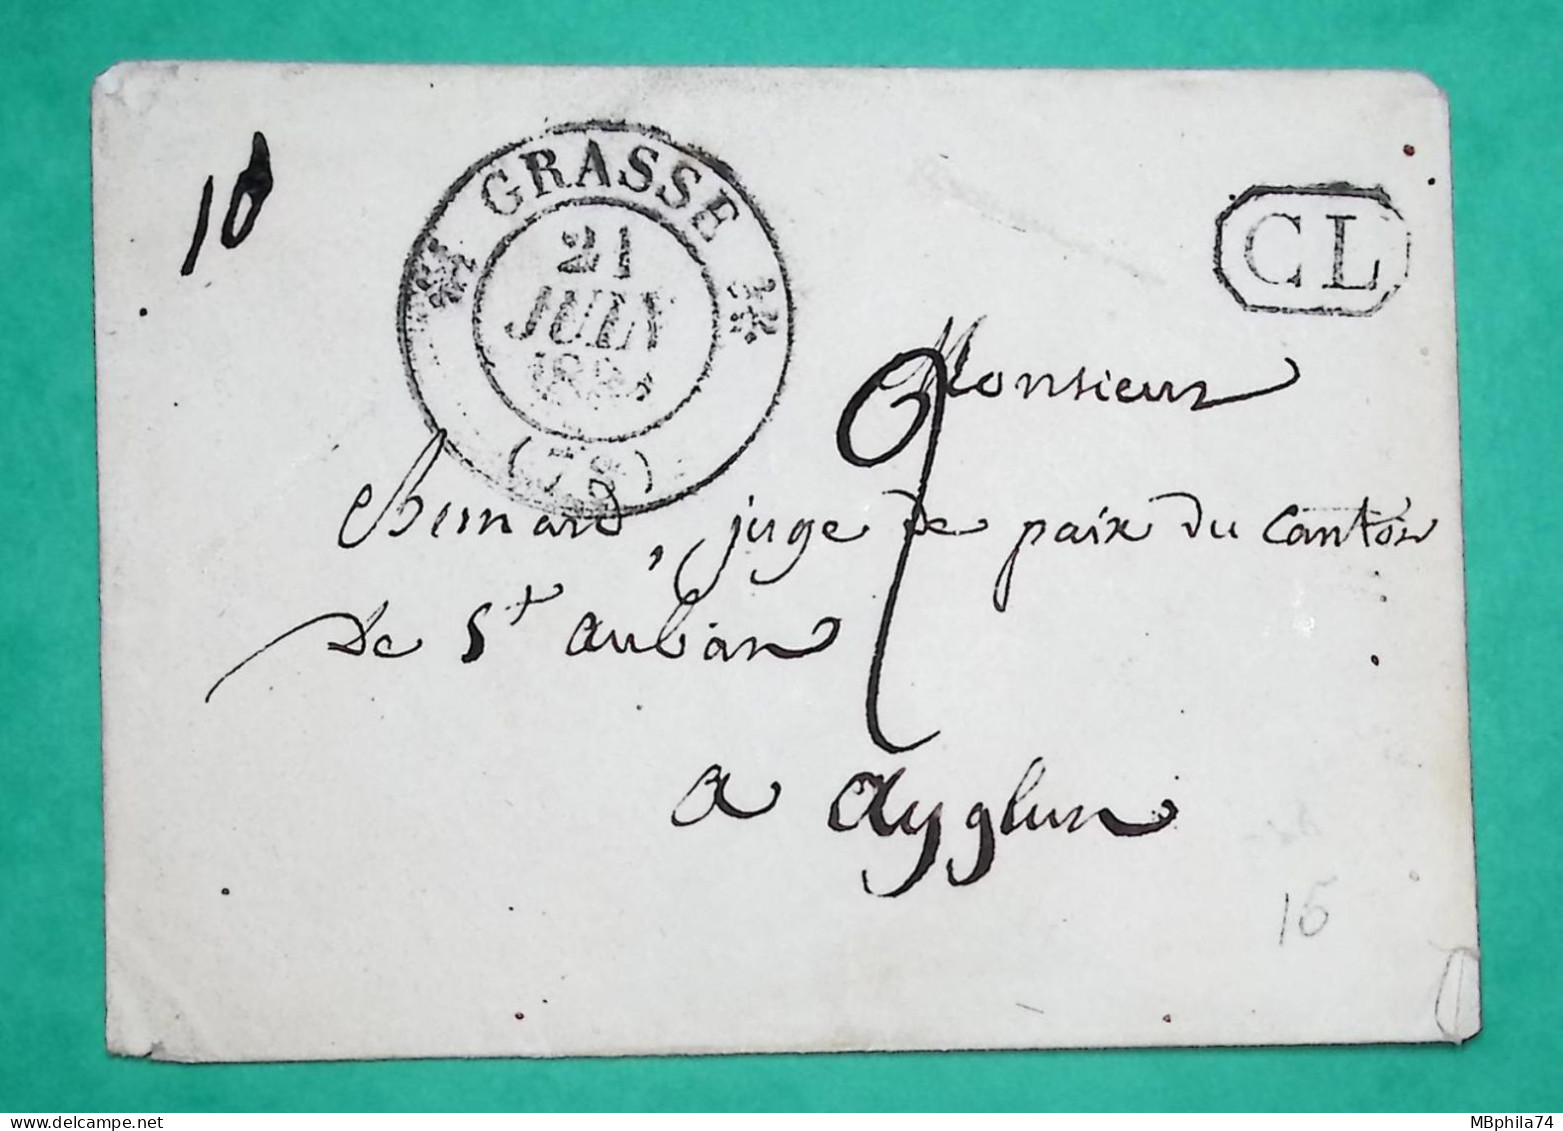 10
GRASSE
21
JUIN
(78)
CL
2
Monsieur
Bernard, juge de paix du Canton
de St auban
a ayglun
15
MBphila74